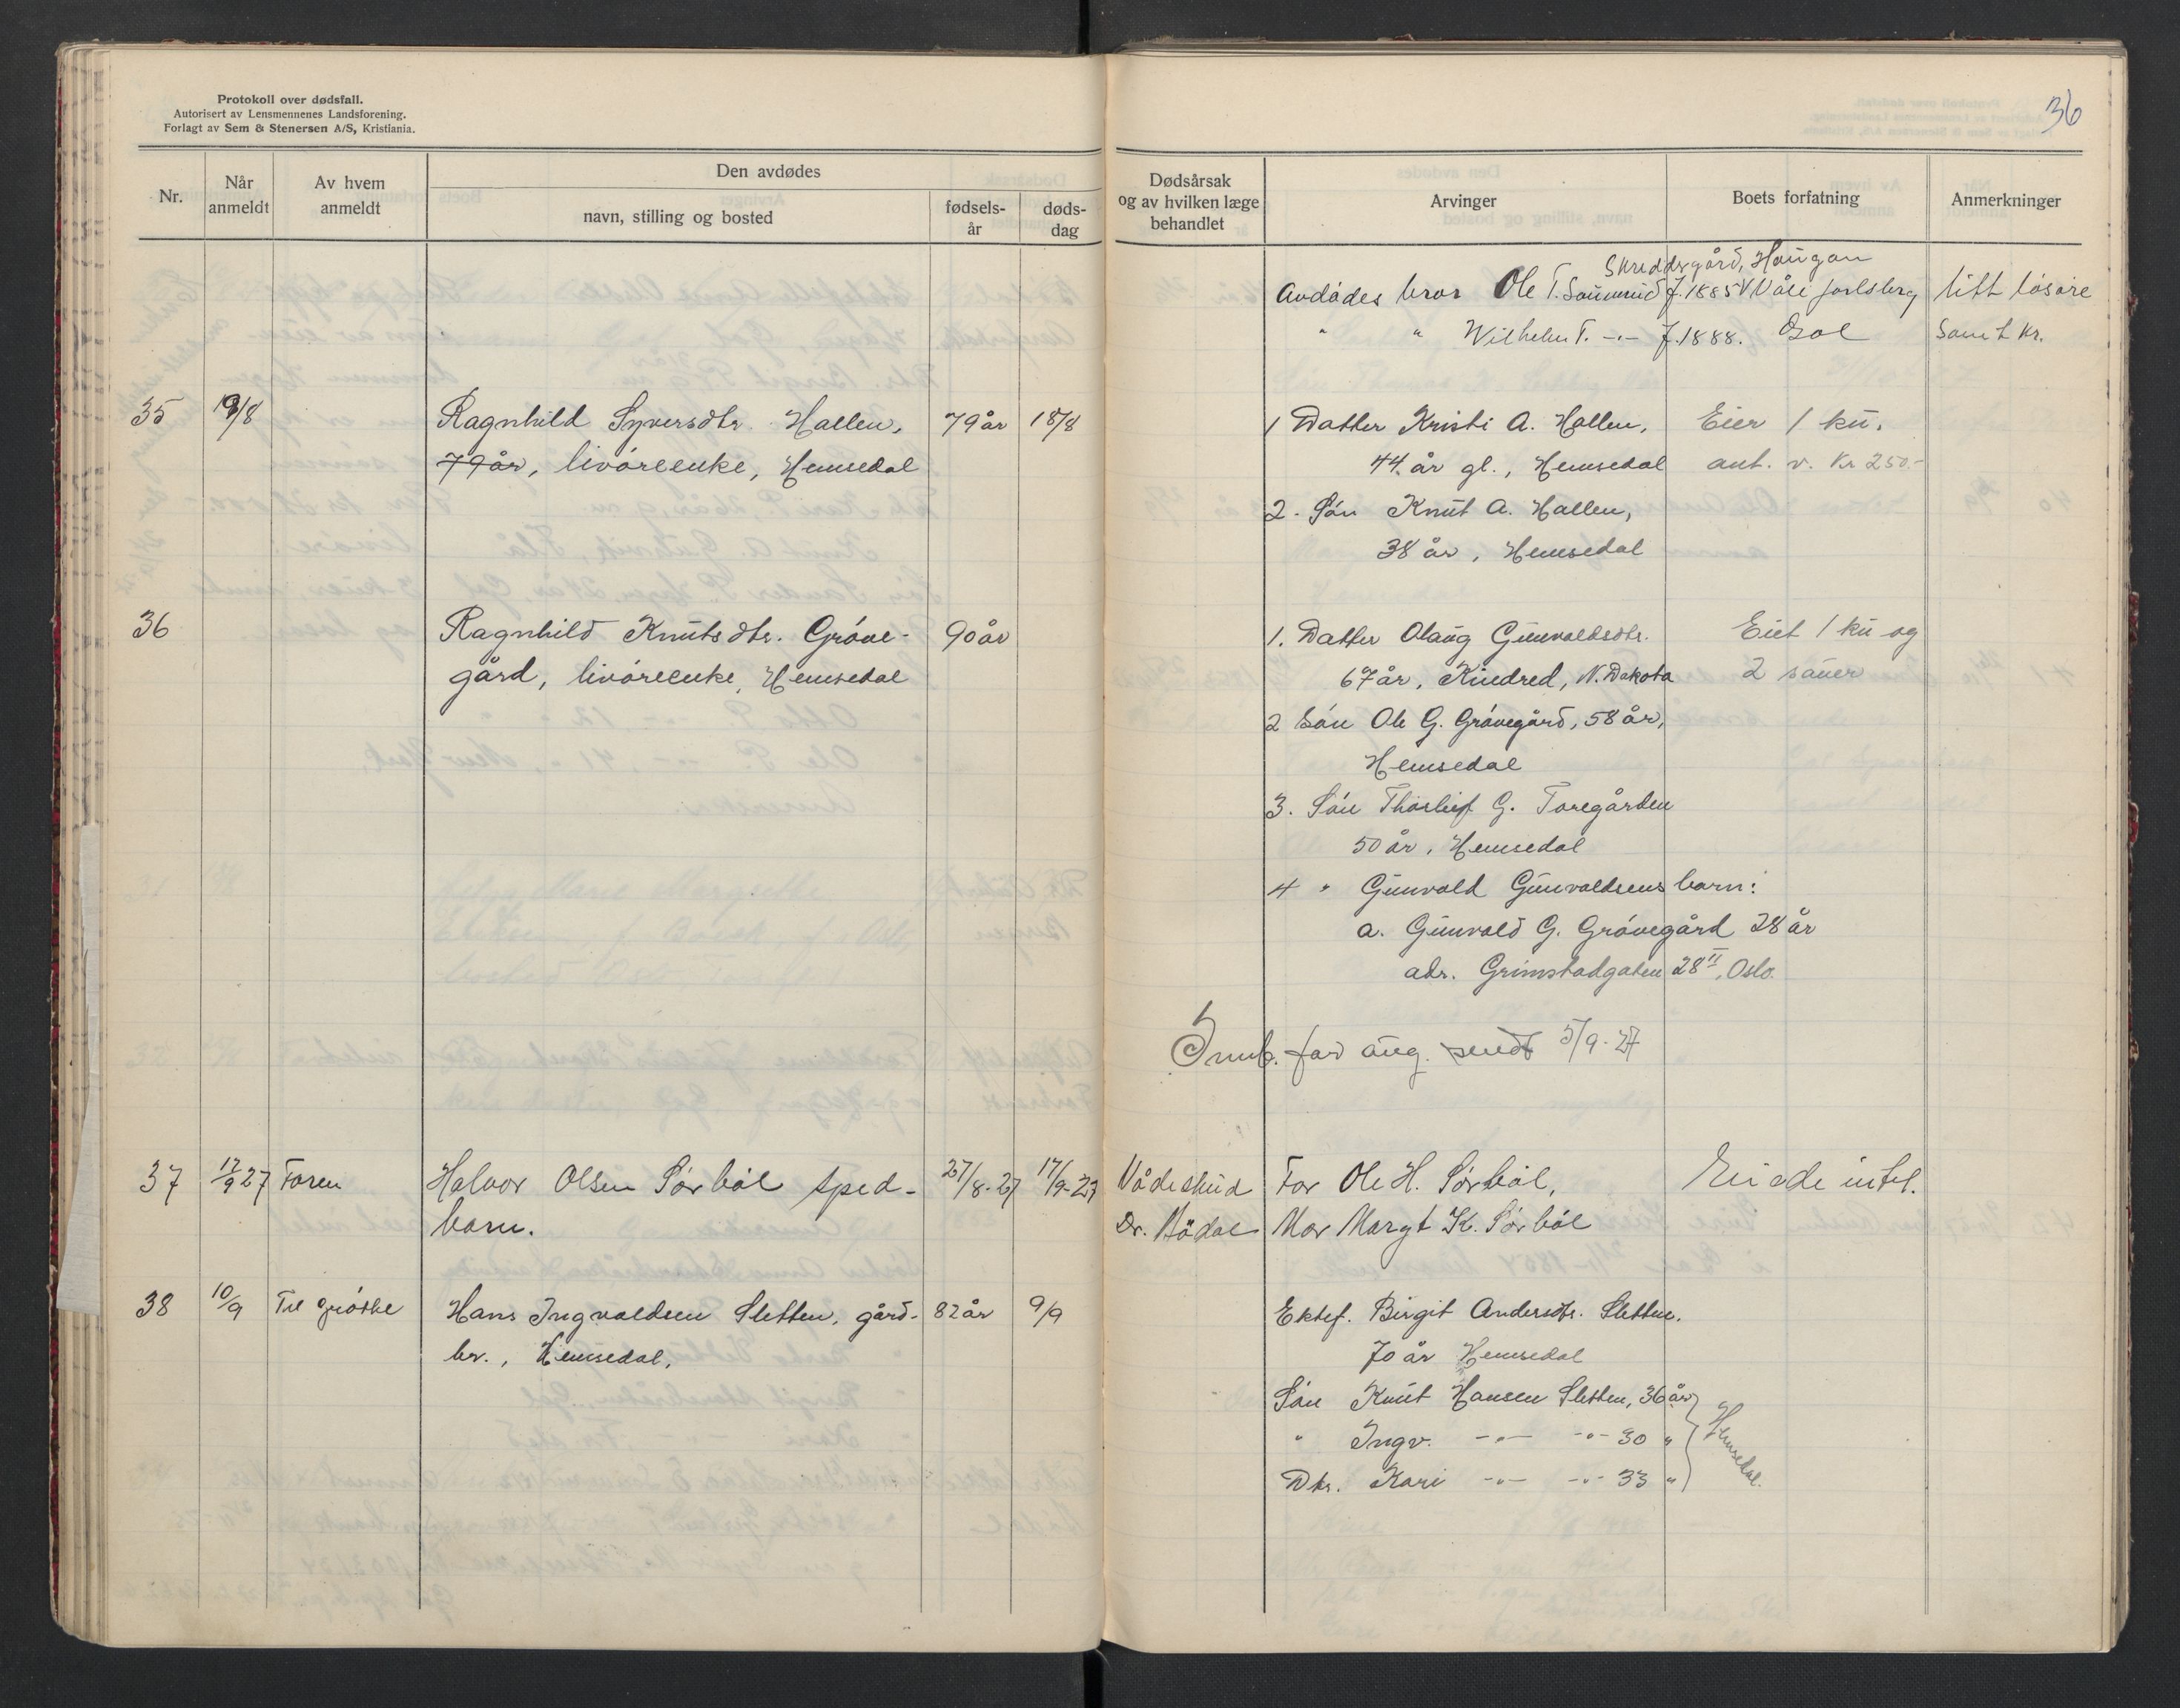 Protokoll over dødsfall.
Autorisert av Lensmennenes Landsforening.
Forlagt av Sem & Stenersen A/S, Kristiania.
36
Nr.
Når anmeldt
Av hvem anmeldt
Den avdødes
navn, stilling og bosted
fødsels-år
døds-dag
Dødsårsak og av hvilken læge behandlet
Arvinger
Boets forfatning
Anmerkninger
Skreddergård, Haugan
Avdødes bror Ole T. f. 1885 Våle Jarlsberg litt løsøre
" " Wilhelm T. -"- f. 1888. Gol samt kr.
35 19/8 Ragnhild Syversdtr. Hallen, 79 år 18/8 1 Datter Kristi A. Hallen, Eier 1 ku.
79 år, livøreenke, Hemsedal 44 år gl., Hemsedal ant. v. kr 250.-
2. Søn Knut A. Hallen,
38 år, Hemsedal
36 Ragnhild Knutsdtr. Grøve- 90 år 1. Datter Olaug Gunvaldsdtr. Eiet 1 ku og
gård, livøreenke, Hemsedal 67 år, Kindred, N. Dakota 2 sauer
2 Søn Ole G. Grøvegård, 58 år,
Hemsedal
3. Søn Thorleif G. Toregården
50 år, Hemsedal
4 " Gunvald Gunvaldsens barn:
a. Gunvald G. Grøvegård 28 år
adr. Grimstadgaten 28 II, Oslo.
for aug. sendt 5/9-27
37 17/9 27 Faren Halvor Olsen Sørbøl sped- 27/8-27 17/9-27 Vådeskud Far Ole H. Sørbøl, Eiede intet.
barn. Dr. Mor Margt K. Sørbøl
38 10/9 Til grøtte Hans Ingvaldsen Sletten, gård- 82 år 9/9 Ektef. Birgit Andersdtr. Sletten.
br., Hemsedal, 70 år Hemsedal
Søn Knut Hansen Sletten, 36 år
" Ingv. -"- -"- 30 " Hemsedal.
Dtr. Kari -"- -"- 33 "